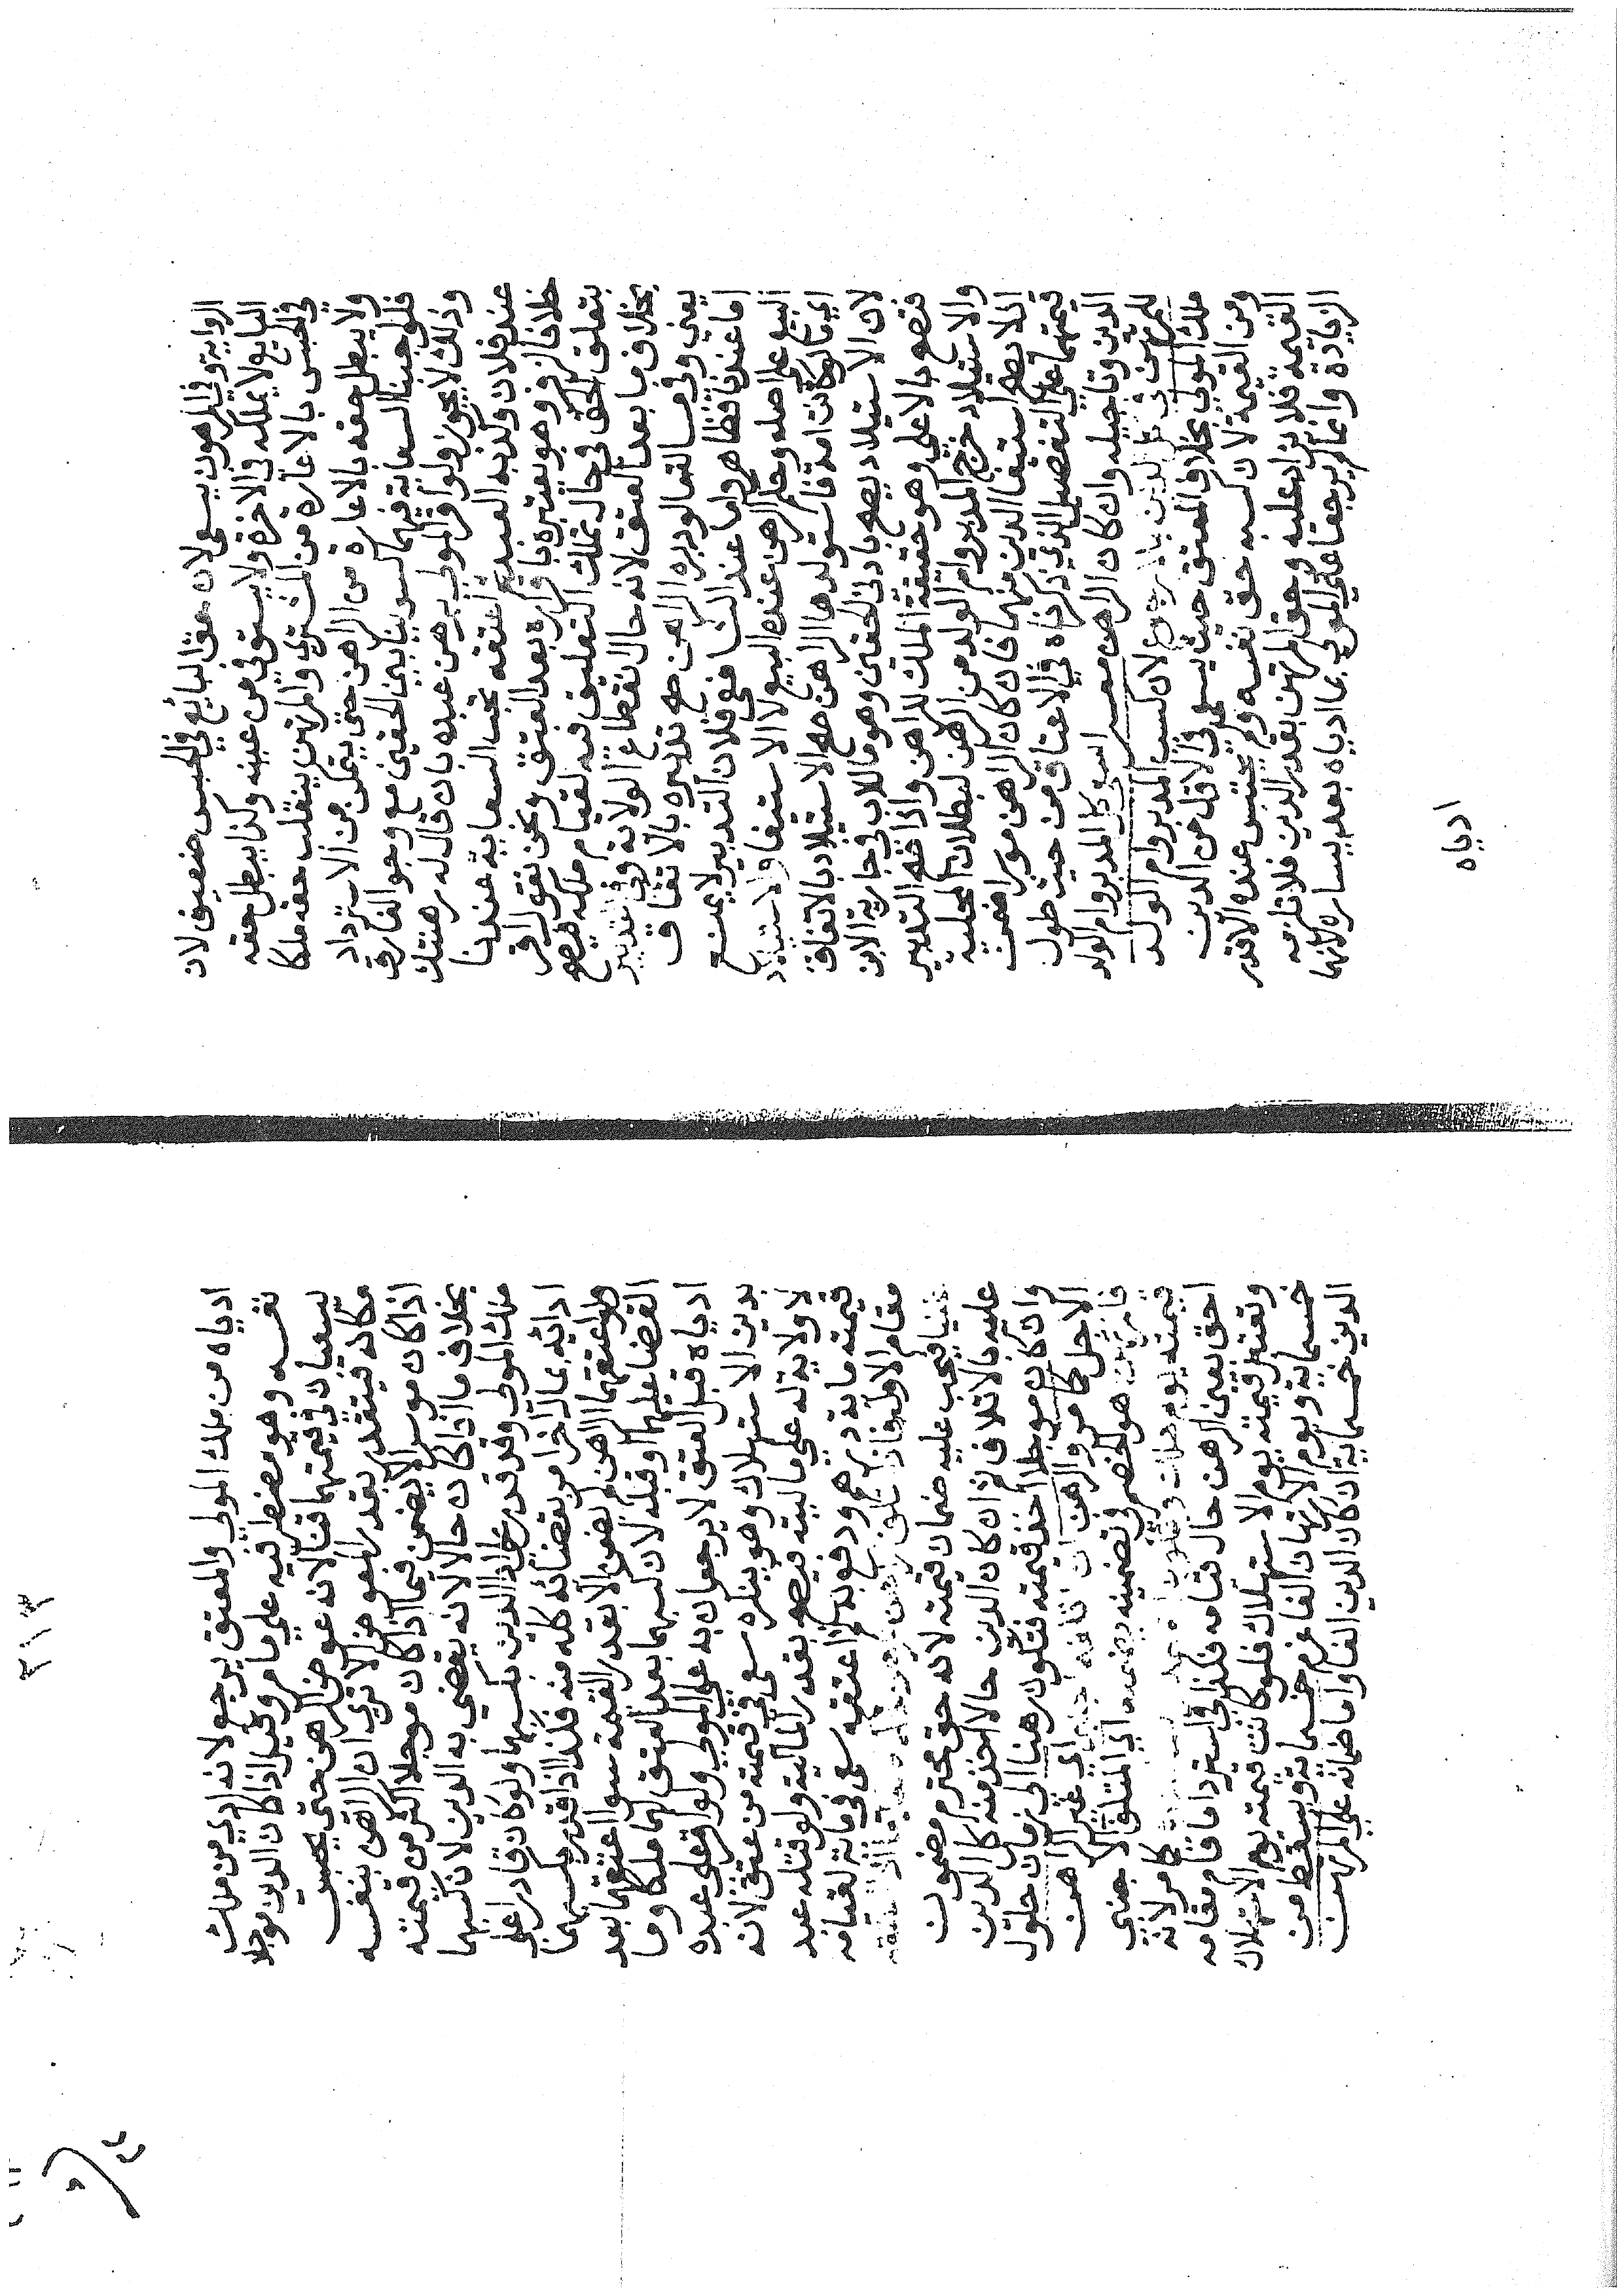 الرواية وفي المرهون يسعى لان حق البائع في الحبس ضعيف لان
البايع لا يملكه في الاخرة ولا يستوفي من عينه وكذا يبطل حقه
في الحبس بالاعارة من المشتري والمرتهن ينقلب حقه ملكا
ولا يبطل حقه بالاعارة من الراهن حتى يتمكن من الاسترداد
فلو اوجبنا السعاية فيهما لسوينا بين الحقين مع وجود الفارق
وذلك لا يجوز ولو اقر المولي برهن عبده بان قال له رهنتك
عند فلان وكذبه العبد ثم اعتقه تجب السعاية عندنا
خلافا لزفر وهو يعتبره باقراره بعد العتق ونحن نقول اقر
بتعلق الحق في حال يملك التعليق فيه لقيام ملكه فيصح
بخلاف ما بعد العتق لانه حال انقطاع الولاية وفي التدبير
يعني وفي مسالتنا لو دبره الراهن صح تدبيره بالاتفاق
اما عندنا فظاهر واما عند الشافعي فلان التدبير لا يمنع
البيع علي اصله وحكم الرهن عنده البيع لا الاستيفا والاستيلاد
اي ما لو كانت امة فاستولدها الراهن صح الاستيلاد بالاتفاق
لان الاستيلاد يصح بادني الحقين وهو ما للاب في جارية الابن
فتصح بالاعلي وهو حقيقة الملك للراهن واذا صح التدبير
والاستيلاد خرج المدبر وام الولد من الرهن لبطلان المحلية
اذ لا يصح استيفا الدين منهما فان كان الراهن موسرا ضمن
قيمتهما علي التفصيل الذي ذكرناه في الاعتاق من حيث حلول
الدين وتاجيله وان كان الراهن معسرا المدبر وام الولد
للمرتهن في كل الدين بلا رجوع لان كسب المدبر وام الولد
ملك المولي بخلاف المعتق حيث يسعي في الاقل من الدين
ومن القيمة لان كسبه حق نفسه ولم يحتبس عنده الا قدر
القيمة فلا يزاد عليه وحق المرتهن بقدر الدين فلا تلزمه
الزيادة وانما لم يرجعا علي المولي بما ادياه بعد يساره لانهما
ادياه
٣١٣
ادياه من ملك المولي والمعتق يرجع لانه ادي من ملك
نفسه وهو مضطر فيه علي ما مر وقيل اذا كان الدين موجلا
يسعيان في قيمتهما قنا لانه عوض الرهن حتي يحبس
مكانه فيتقدر بقدر المعوض الا تري ان الراهن بنفسه
اذا كان موسرا لا يضمن فيما اذا كان موجلا اكثر من قيمته
بخلاف ما اذا كان حالا لانه يقضي به الدين لان كسبهما
ملك المولي وقد قدر علي الدين بكسبهما ولو كان قادرا علي
ادائه بمال اخر امر بقضائه كله منه فلذا اذا قدر بكسبهما
ولو اعتقهما الراهن لم يضمن الا بقدر القيمة سوا اعتقهما بعد
القضا عليهما او قبله لان كسبهما بعد العتق لهما ملكا وما
ادياه قبل العتق لا يرجعان به علي المولي ولو اقر علي عبده
بدين الاستهلاك وهو ينكره سعي في قيمته من عتق لانه
لا ولاية له علي ماليته فيصح بقدر المالية ولو قتله عبد
قيمته ماية درهم ودفع به ثم اعتقه سعي في ماية لقيامه
مقام الاول
شيئا فيجب عليه ضمان قيمته لانه حق محترم مضمون
عليه بالاتلاف ثم ان كان الدين حالا اخذ منه كل الدين
وان كان موجلا اخذ قيمته فتكون رهنا الي زمان حلول
الاجل كما مر والرهن ان اتلفه اجنبي اي غير الراهن
فالمرتهن هو الخصم في تضمينه اي المتلف الاجنبي
قيمته يوم هلك وتكون كما مر لانه
احق بعين الرهن حال قيامه فكذا في استرداد ما قام مقامه
وتعتبر قيمته يوم الاستهلاك فلو كانت قيمته يوم الاستهلاك
خمسماية ويوم الارتهان الفا غرم خمسماية ويسقط من
الدين خمسماية ان كان الدين الفا واما ضمانه علي المرتهن